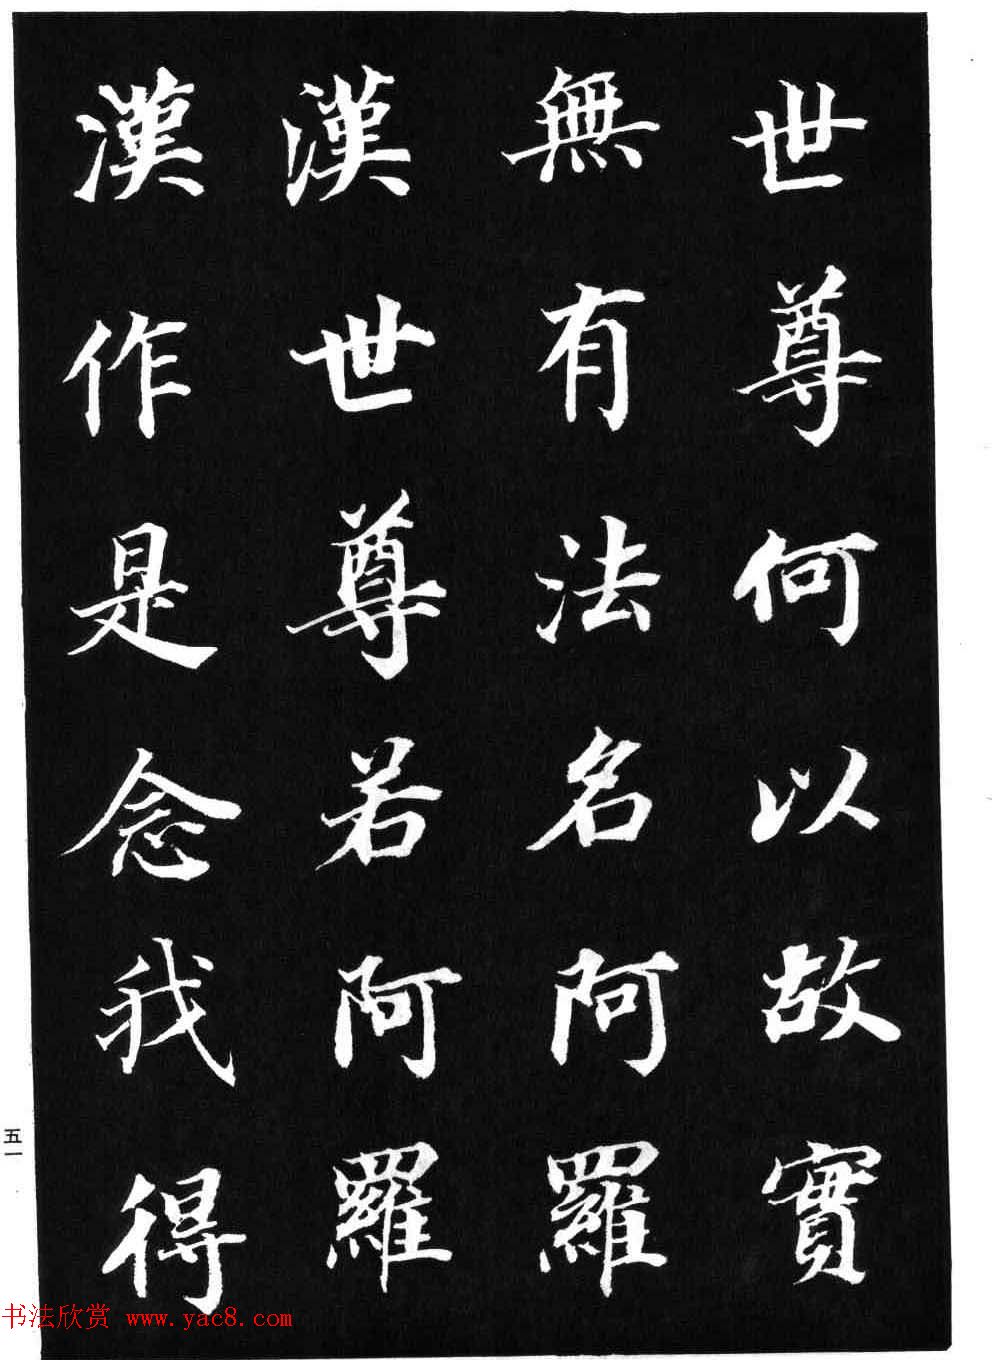 世尊何以故實
無有法名阿羅
漢世尊若阿羅
漢作是念我得
五一
书法欣赏 www.yac8.com